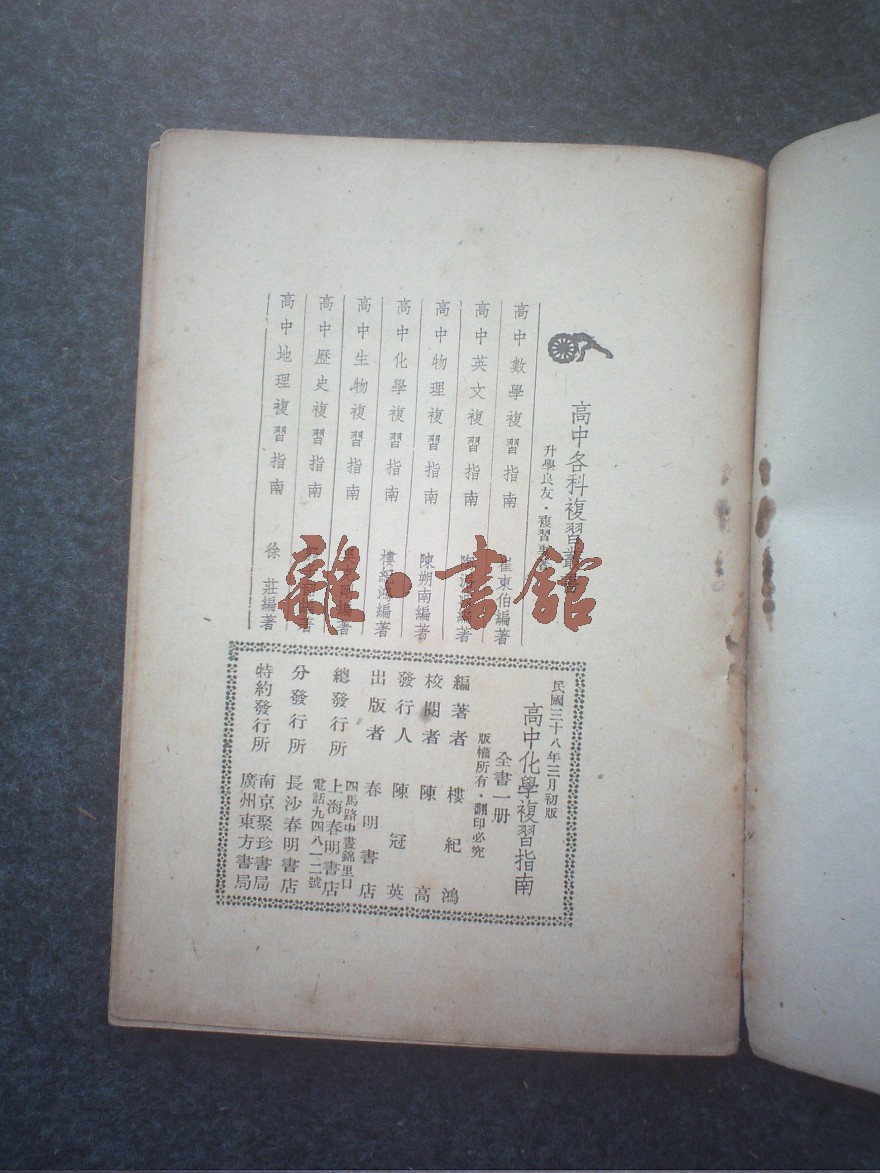 高中各科複習叢書
升學良友・複習
高中數學複習指南 崔東伯編著
高中英文複習指南 編著
高中物理複習指南 陳朔南編著
高中化學複習指南 樓紀鴻編著
高中生物複習指南 編著
高中歷史複習指南 著
高中地理複習指南 徐莊編著
民國三十八年三月初版
高中化學複習指南
全書一册
版權所有・翻印必究
編著者 樓紀鴻
校閱者 陳高
發行人 陳冠英
出版者 春明書店
總發行所 四馬路中晝錦里口
上海春明書店
電話九四八一二號
分發行所 長沙春明書店
特約發行所 南京聚珍書局
廣州東方書局
雜・書館